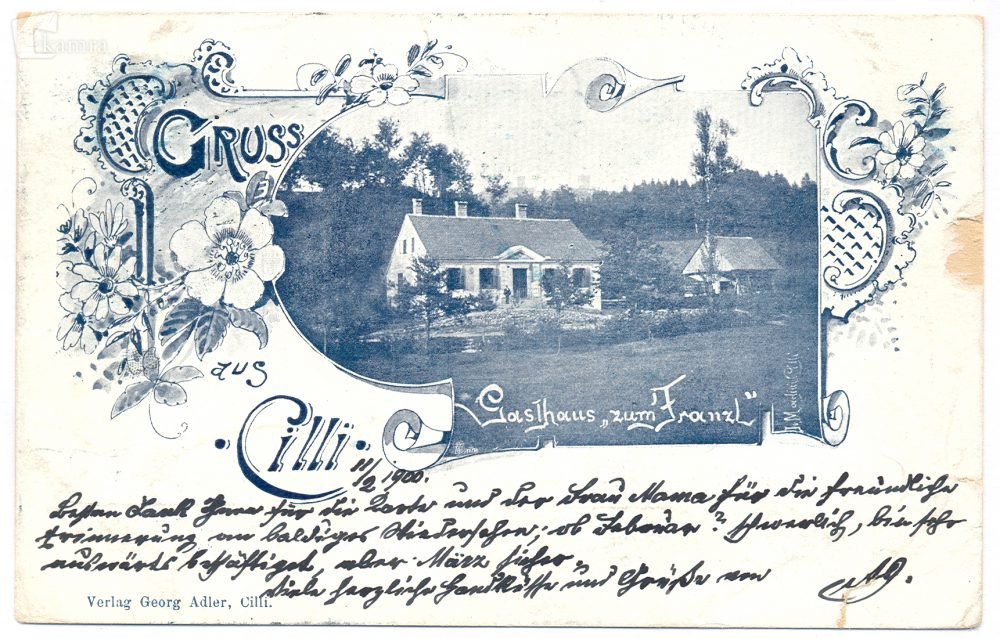 kamra
GRUSS
aus
Cilli
Gasthaus „zum Franzl"
11/2 1900.
Besten Dank Ihnen für die Karte und der Frau Mama für die freundliche
Erinnerung an baldiges Wiedersehen; ob Februar? schwerlich, bin sehr
auswärts beschäftiget, aber März sicher.
Viele herzliche Handküsse und Grüße von
Verlag Georg Adler, Cilli.